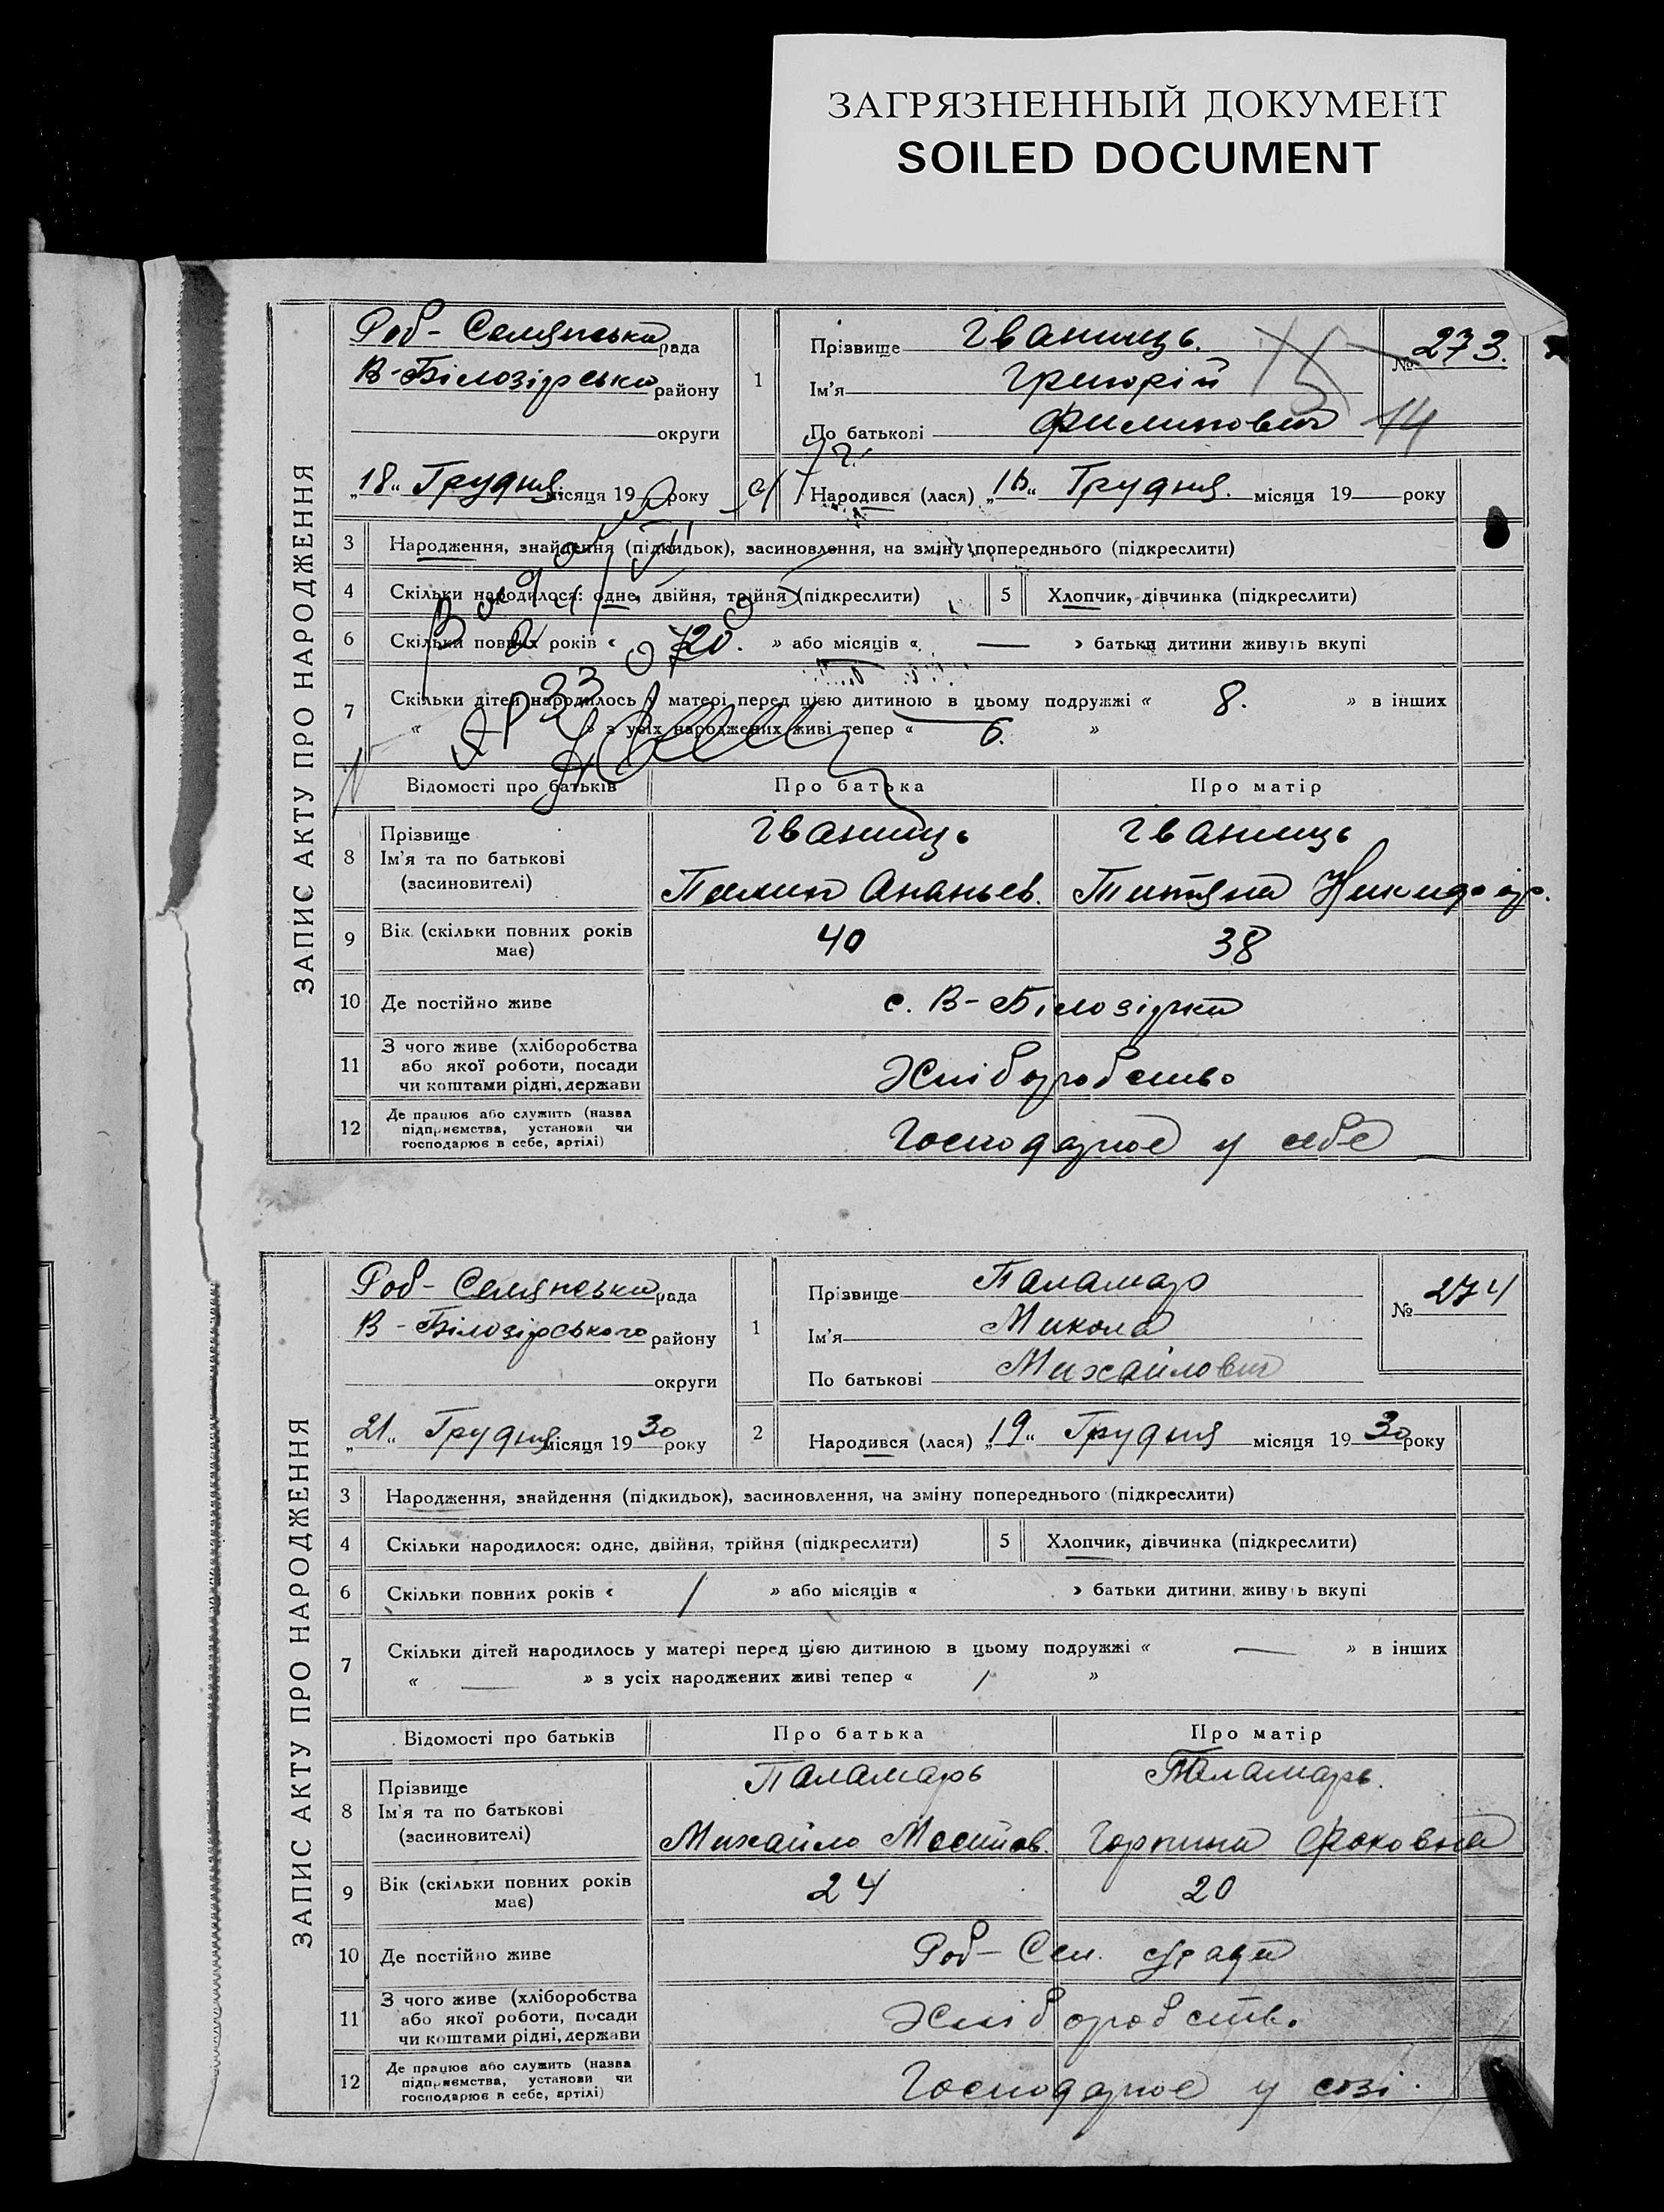 ЗАГРЯЗНЕННЫЙ ДОКУМЕНТ
SOILED DOCUMENT
ЗАПИС АКТУ ПРО НАРОДЖЕННЯ
Роб-Селянська рада
В-Білозірська району
округи
„18“ Грудня місяця 19 року
1
Прізвище Іваниць.
Ім'я Григорій
По батькові Филипович
№ 273.
14
Народився (лася) „ “ Грудня. місяця 19 року
3 Народження, знайдення (підкидьок), засиновлення, на зміну попереднього (підкреслити)
4 Скільки народилося: одне, двійня, трійня (підкреслити) 5 Хлопчик, дівчинка (підкреслити)
6 Скільки повних років « 20. » або місяців « — » батьки дитини живуть вкупі
7 Скільки дітей народилось у матері перед цією дитиною в цьому подружжі « 8. » в інших
« » з усіх народжених живі тепер « 6. »
Відомості про батьків Про батька Про матір
8 Прізвище Іваниць Іваниць
Ім'я та по батькові
(засиновителі) Пилип Ананьев. Титяна
9 Вік (скільки повних років має) 40 38
10 Де постійно живе с. В-Білозірка
11 З чого живе (хліборобства
або якої роботи, посади
чи коштами рідні, держави Хліборобство
12 Де працює або служить (назва
підприємства, установи чи
господарює в себе, артілі) Господарює у себе
ЗАПИС АКТУ ПРО НАРОДЖЕННЯ
Роб-Селянська рада
В-Білозірського району
округи
„21“ Грудня місяця 1930 року
1
Прізвище Паламар
Ім'я Микола
По батькові Михайлович
№ 274
2 Народився (лася) „19“ Грудня місяця 1930 року
3 Народження, знайдення (підкидьок), засиновлення, на зміну попереднього (підкреслити)
4 Скільки народилося: одне, двійня, трійня (підкреслити) 5 Хлопчик, дівчинка (підкреслити)
6 Скільки повних років « 1 » або місяців « » батьки дитини живуть вкупі
7 Скільки дітей народилось у матері перед цією дитиною в цьому подружжі « — » в інших
« — » з усіх народжених живі тепер « 1 »
Відомості про батьків Про батька Про матір
8 Прізвище Паламарь Паламарь.
Ім'я та по батькові
(засиновителі) Михайло Горпина Фоковна
9 Вік (скільки повних років має) 24 20
10 Де постійно живе Роб-Сел.
11 З чого живе (хліборобства
або якої роботи, посади
чи коштами рідні, держави Хліборобство
12 Де працює або служить (назва
підприємства, установи чи
господарює в себе, артілі) Господарює у созі.